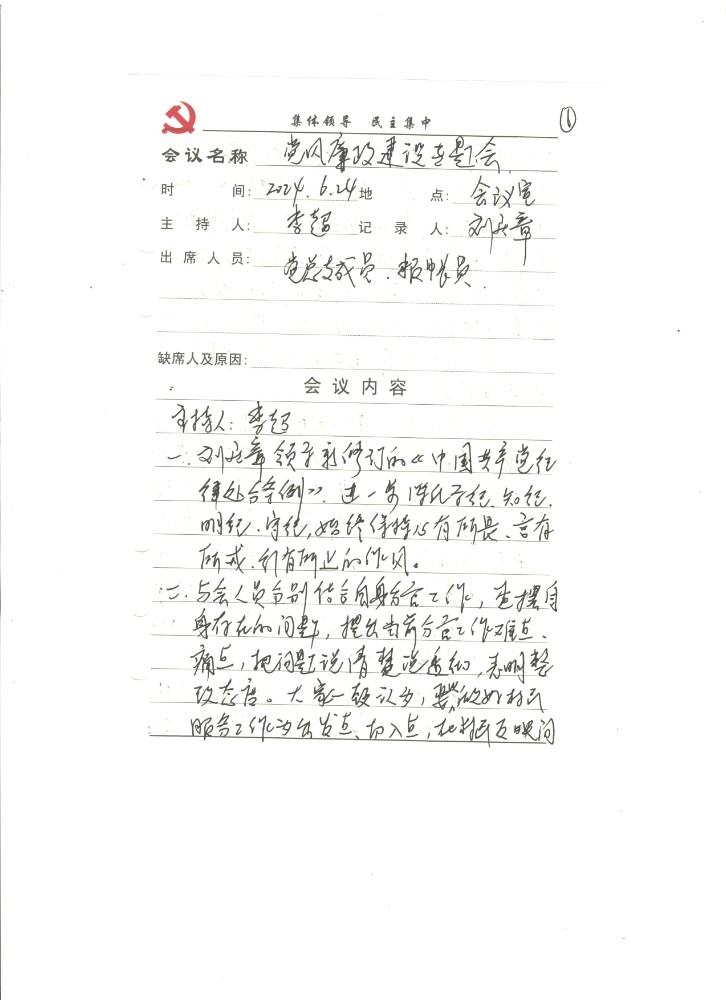 集体领导 民主集中 ⑥
会议名称 党风廉政建设专题会
时 间: 2024.6.24 地 点: 会议室
主 持 人: 李超 记 录 人: 刘 章
出席人员: 党总支成员、报中长员
缺席人及原因:
会议内容
主持人:李超
一、刘 章领学新修订的《中国共产党纪
律处分条例》,进一步 学纪、知纪、
明纪、守纪,始终保持心有所畏、言有
所戒、行有所止的作风。
二、与会人员分别结合自身分管工作,查摆自
身存在的问题,提出当前分管工作难点、
痛点,把问题说清楚说透彻,表明整
改态度。大家一致认为,要以做好村民
服务工作为出发点、切入点,把村民反映问